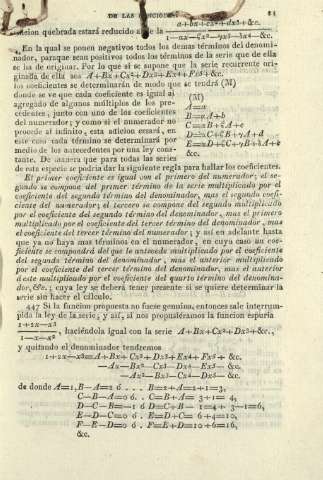 DE LAS FUNCIONES. 81
a+bx+cx²+dx³+&c.
funcion quebrada estará reducido á la
1—αx—ζx²—γx³—δx⁴—&c.
En la qual se ponen negativos todos los demas términos del denomi-
nador, para que sean positivos todos los términos de la serie que de ella
se ha de originar. Por lo que si se supone que la serie recurrente ori-
ginada de ella sea A+Bx+Cx²+Dx³+Ex⁴+Fx⁵+&c.
los coeficientes se determinarán de modo que se tendrá (M)
donde se ve que cada coeficiente es igual al
agregado de algunos múltiplos de los pre-
cedentes, junto con uno de los coeficientes
del numerador; y como si el numerador no
procede al infinito, esta adicion cesará, en
este caso cada término se determinará por
medio de los antecedentes por una ley cons-
tante. De manera que para todas las series
(M)
A=a
B=αA+b
C=αB+ζA+c
D=αC+ζB+γA+d
E=αD+ζC+γB+δA+e
&c.
de esta especie se podria dar la siguiente regla para hallar los coeficientes.
El primer coeficiente es igual con el primero del numerador; el se-
gundo se compone del primer término de la serie multiplicado por el
coeficiente del segundo término del denominador, mas el segundo coefi-
ciente del numerador; el tercero se compone del segundo multiplicado
por el coeficiente del segundo término del denominador, mas el primero
multiplicado por el coeficiente del tercer término del denominador, mas
el coeficiente del tercer término del numerador; y así en adelante hasta
que ya no haya mas términos en el numerador, en cuyo caso un coe-
ficiente se compondrá del que le antecede multiplicado por el coeficiente
del segundo término del denominador, mas el anterior multiplicado
por el coeficiente del tercer término del denominador, mas el anterior
á este multiplicado por el coeficiente del quarto término del denomina-
dor, &c.; cuya ley se deberá tener presente si se quiere determinar la
serie sin hacer el cálculo.
447 Si la funcion propuesta no fuese genuina, entonces sale interrum-
pida la ley de la serie; y así, si nos propusiéramos la funcion espuria
1+2x—x³
, haciéndola igual con la serie A+Bx+Cx²+Dx³+&c.,
1—x—x²
y quitando el denominador tendremos
1+2x—x³=A+Bx+Cx²+Dx³+Ex⁴+Fx⁵+ &c.
—Ax—Bx²—Cx³—Dx⁴—Ex⁵— &c.
—Ax²—Bx³—Cx⁴—Dx⁵— &c.
de donde A=1, B—A=2 ó ... B=2+A=2+1=3,
C—B—A=0 ó. . C=B+A= 3+1= 4,
D—C—B=—1 ó D=C+B— 1=4+ 3—1=6,
E—D—C=0 ó. E=D+C= 6+4=10,
F—E—D=0 ó. F=E+D=10+6=16,
&c.